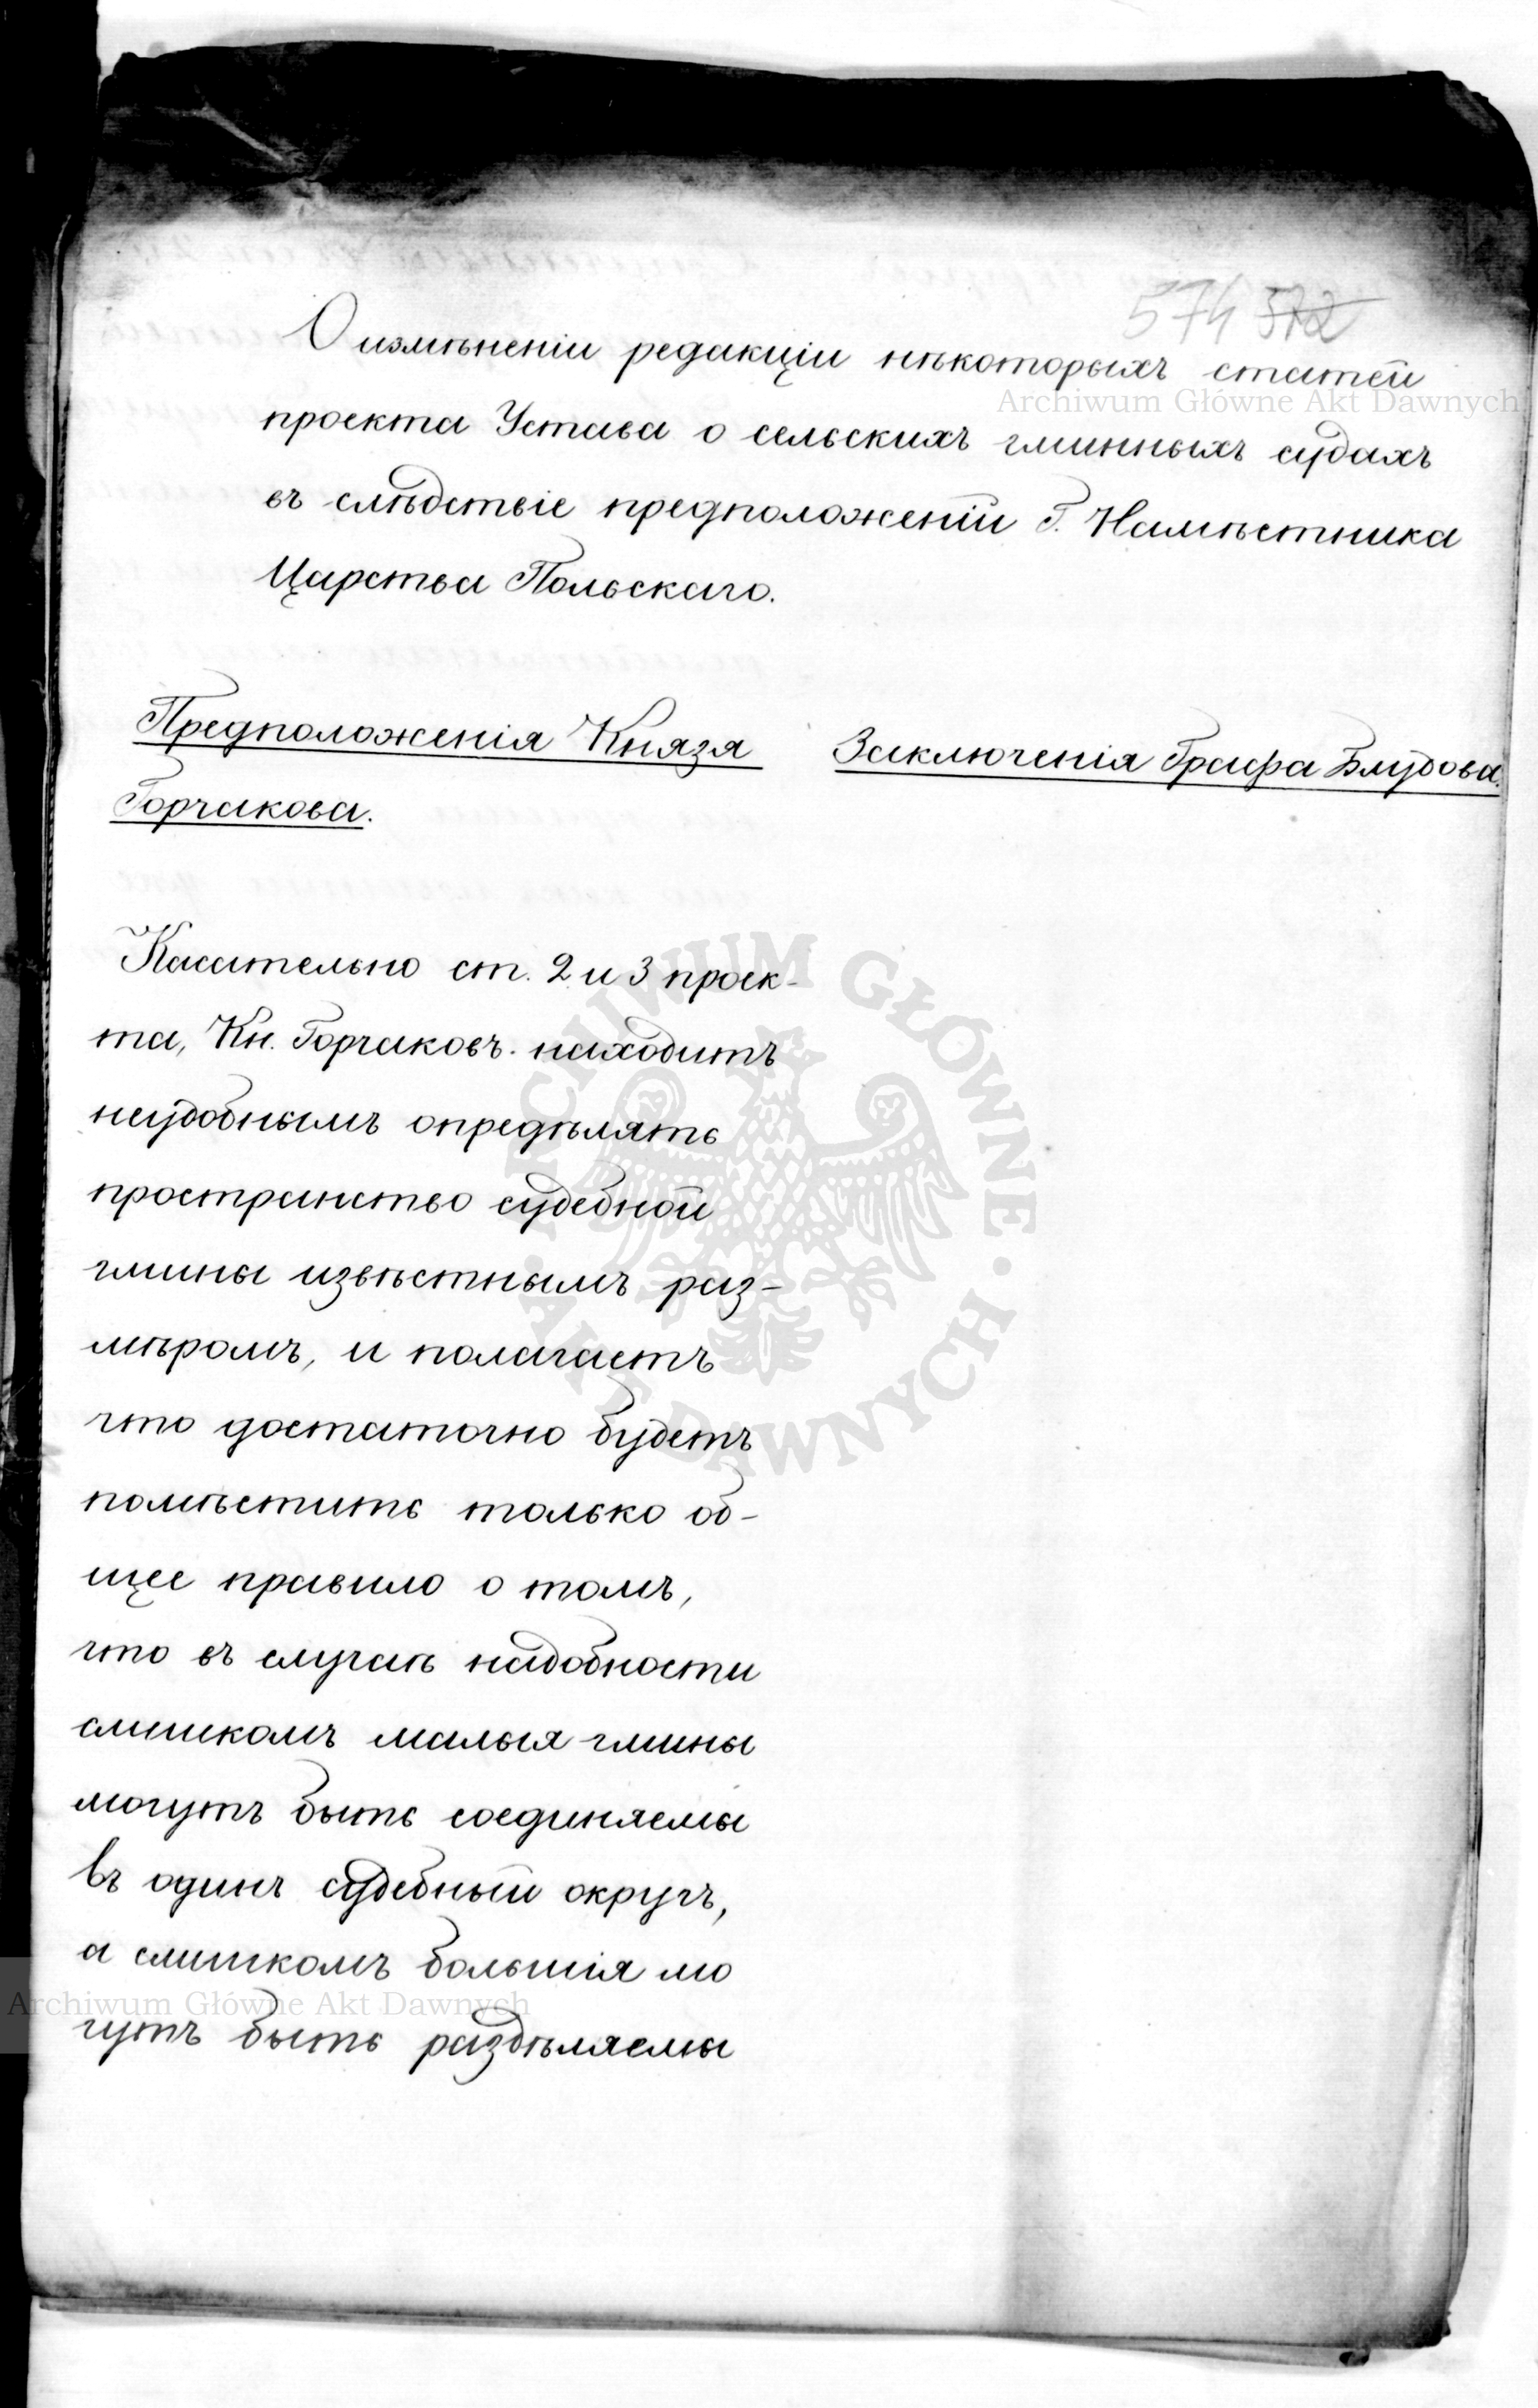 574 572
О измѣненіи редакціи нѣкоторыхъ статей
Archiwum Główne Akt Dawnych
проекта Устава о сельскихъ гминныхъ судахъ
въ слѣдствіе предположеній Г. Намѣстника
Царства Польскаго.
Предположенія Князя
Горчакова.
Заключенія Графа Блудова.
Касательно ст. 2 и 3 проек-
та, Кн. Горчаковъ находитъ
неудобнымъ опредѣлять
пространство судебной
гмины извѣстнымъ раз-
мѣромъ, и полагаетъ
что достаточно будетъ
помѣстить только об-
щее правило о томъ,
что въ случаѣ надобности
слишкомъ малыя гмины
могутъ быть соединяемы
въ одинъ судебный округъ,
а слишкомъ большія мо
гутъ быть раздѣляемы
ARCHIWUM GŁÓWNE · AKT DAWNYCH ·
Archiwum Główne Akt Dawnych